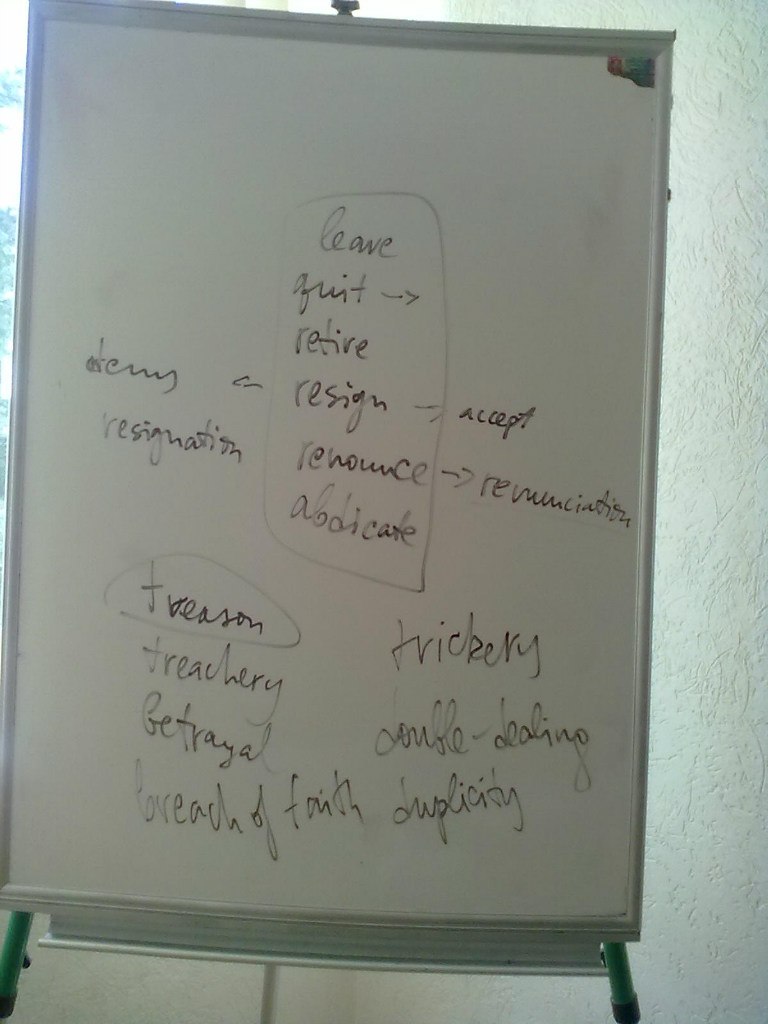 leave
quit →
retire
deny ← resign → accept
resignation
renounce → renunciation
abdicate
treason
treachery trickery
betrayal double-dealing
breach of faith duplicity